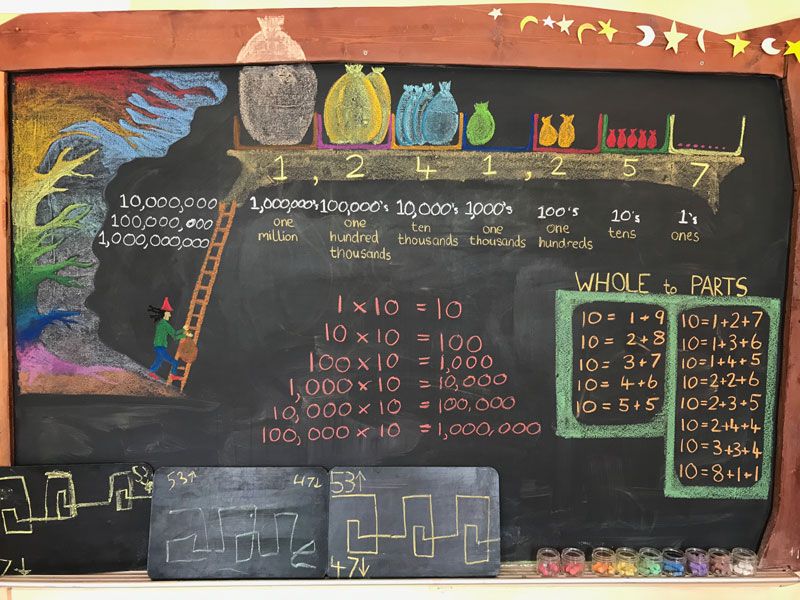 1, 2 4 1, 2 5 7
10,000,000
100,000,000
1,000,000,000
1,000,000's 100,000's 10,000's 1,000's 100's 10's 1's
one million
one hundred thousands
ten thousands
one thousands
one hundreds
tens
ones
1 x 10 = 10
10 x 10 = 100
100 x 10 = 1,000
1,000 x 10 = 10,000
10,000 x 10 = 100,000
100,000 x 10 = 1,000,000
WHOLE to PARTS
10 = 1+9
10 = 2+8
10 = 3+7
10 = 4+6
10 = 5+5
10=1+2+7
10=1+3+6
10=1+4+5
10=2+2+6
10=2+3+5
10=2+4+4
10=3+3+4
10=8+1+1
53↑
47↓
53↑
47↓
7↓